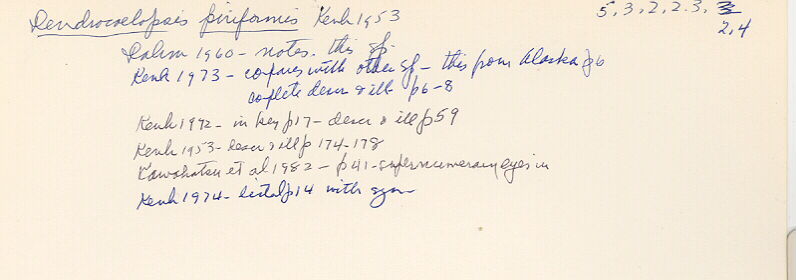 Dendrocoelopsis piriformis Kenk 1953 5, 3, 2, 2, 3,
2, 4
1960 - notes. this sp.
Kenk 1973 - compares with other sp - this from Alaska p6
complete descr & ill p6-8
Kenk 1972 - in key p17 - descr & ill p59
Kenk 1953 - descr & ill p 174-178
Kawakatsu et al 1982 - p41 - supernumerary eyes in
Kenk 1974 - listed p14 with syn